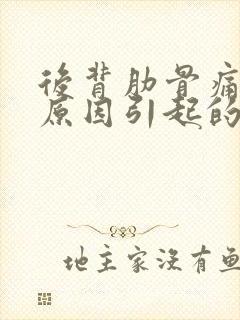 後背肋骨痛
原因引起的
地主家沒有魚